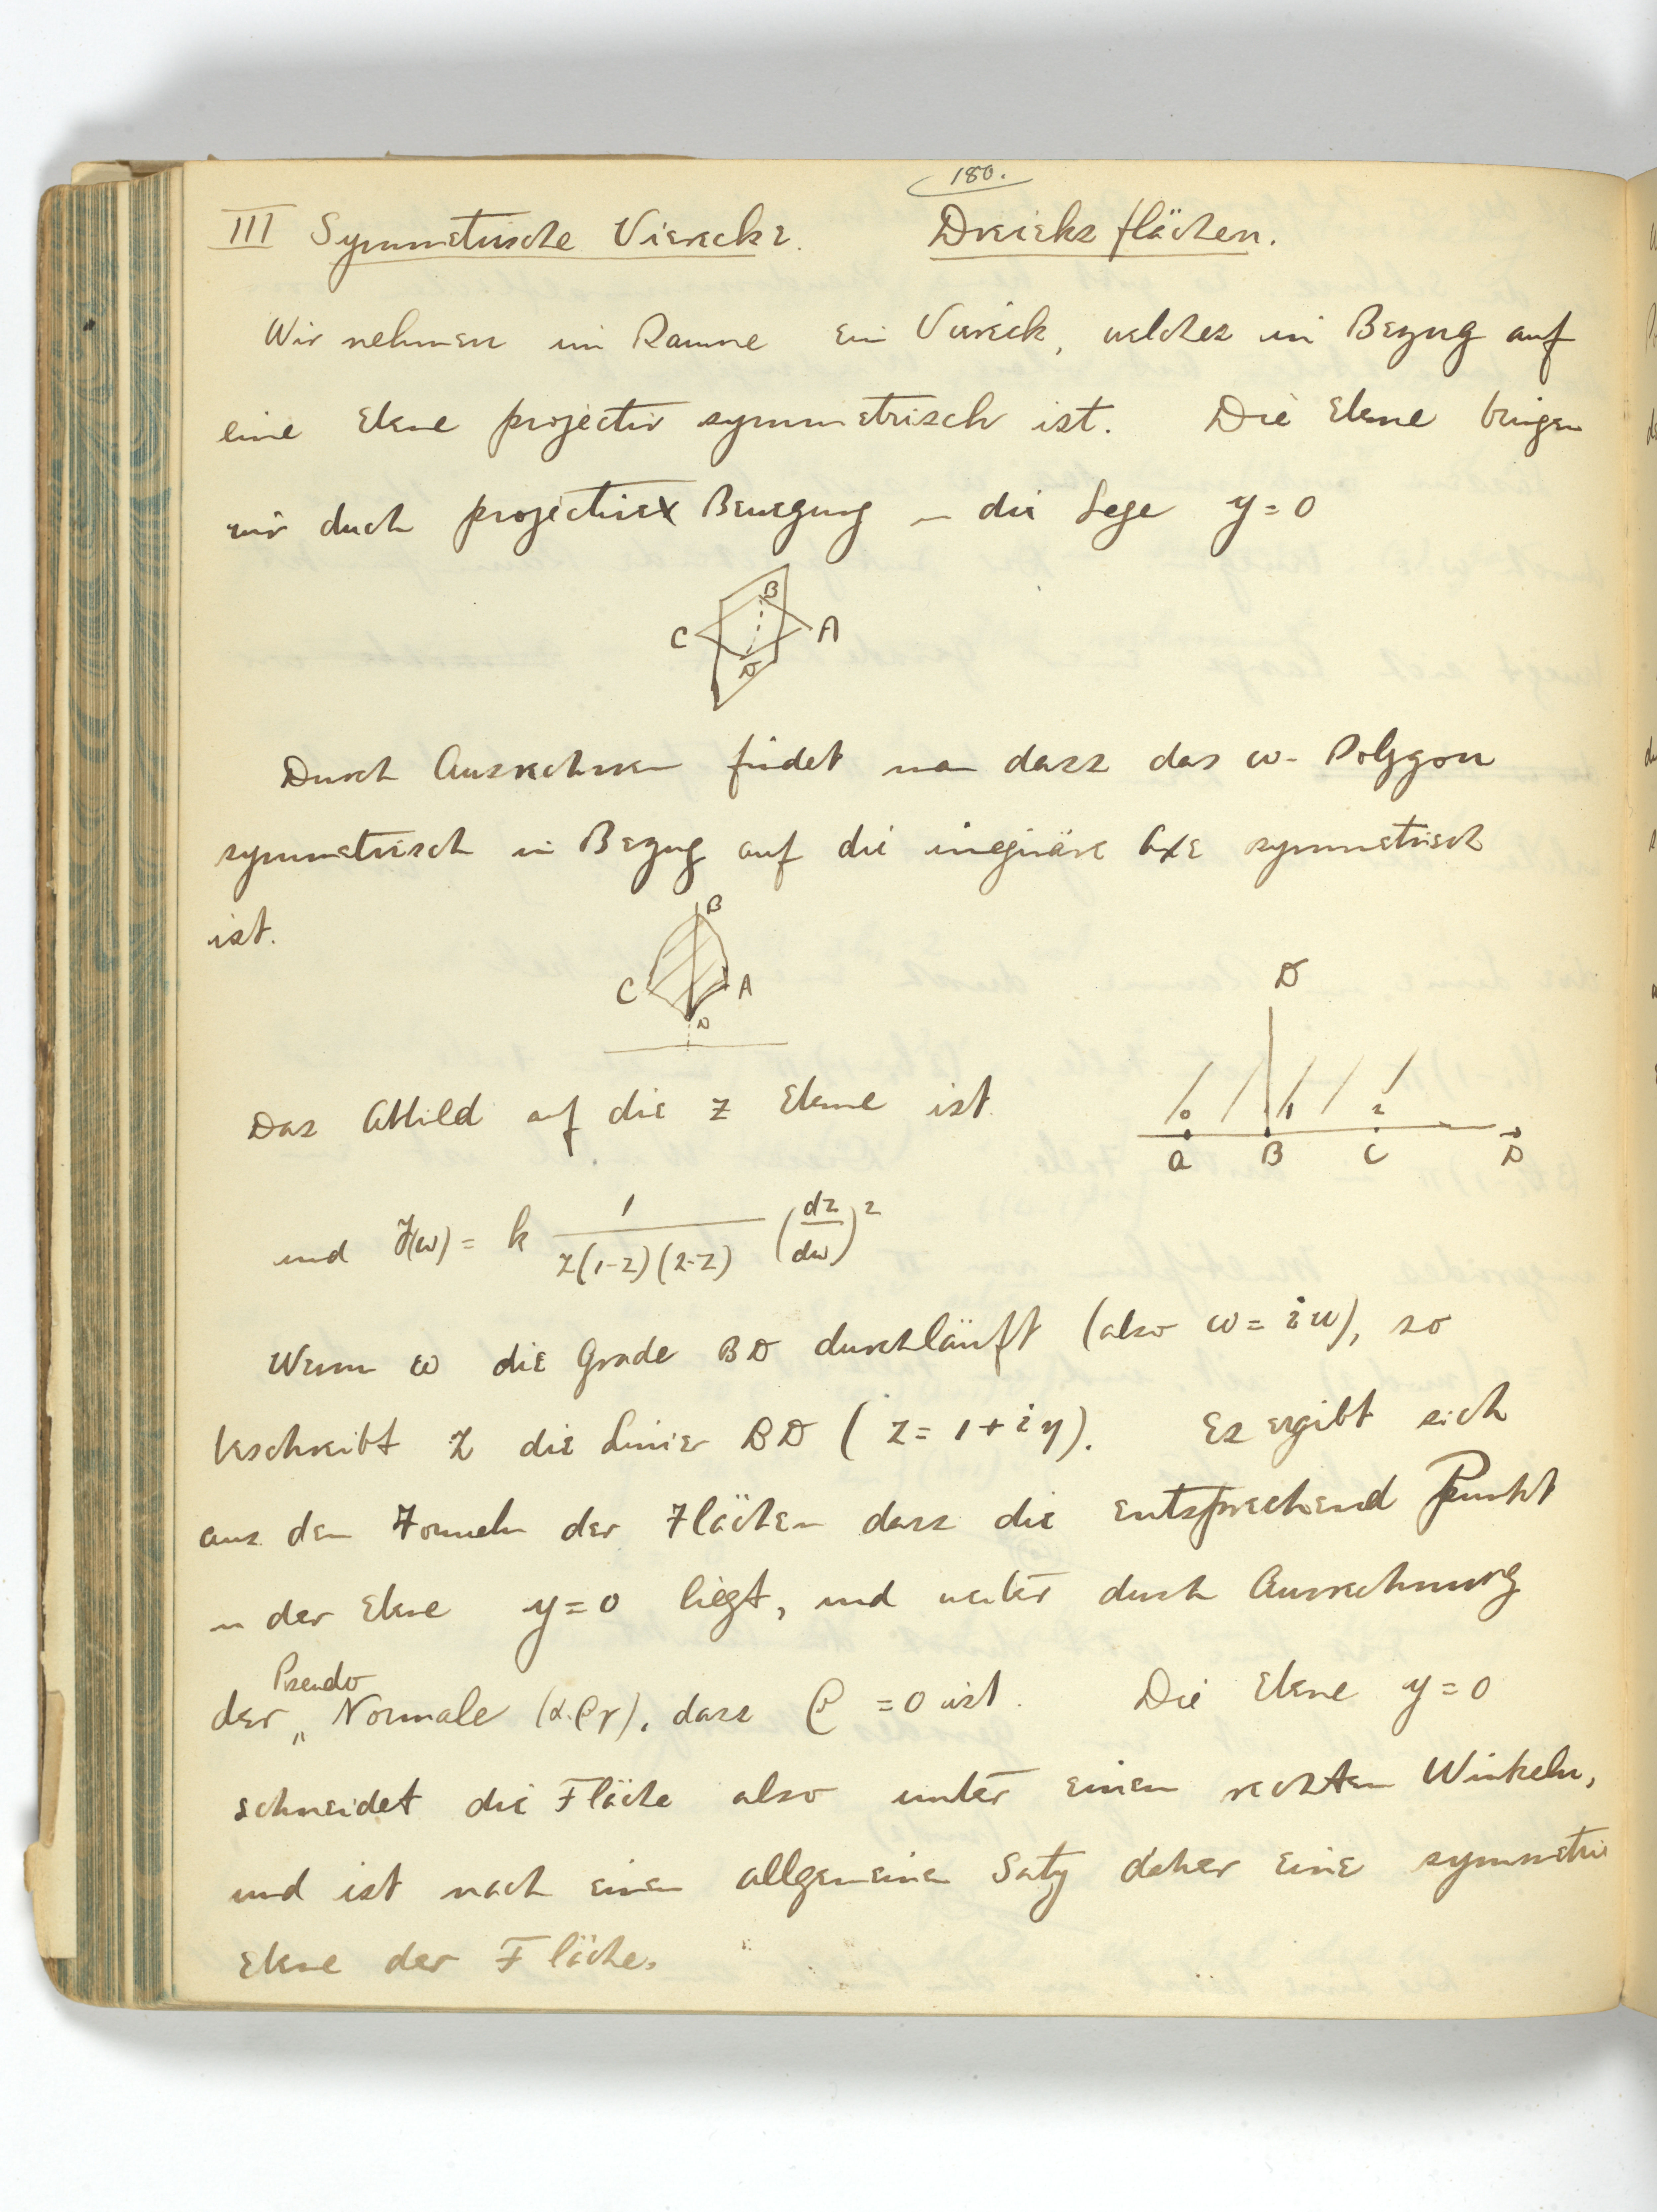 180.
III Symmetrische Vierecke. Dreiecksflächen.
Wir nehmen im Raume ein Viereck, welches in Bezug auf
eine Ebene projectiv symmetrisch ist. Die Ebene bringen
wir durch projective Bewegung in die Lage y = 0
B
C A
D
Durch Ausrechnen findet man dass das ω-Polygon
symmetrisch in Bezug auf die imaginäre Axe symmetrisch
ist.
B
C A
D
D
0 1 2
A B C D
Das Abbild auf die z Ebene ist
und F(ω) = k 1/(z(1-z)(2-z)) (dz/dω)²
Wenn ω die Grade BD durchläuft (also ω = iu), so
beschreibt z die Linie BD (z = 1 + iy). Es ergibt sich
aus den Formeln der Flächen dass die entsprechend Punkt
in der Ebene y = 0 liegt, und weiter durch Ausrechnung
der Pseudo Normale (α.βγ), dass β = 0 ist. Die Ebene y = 0
schneidet die Fläche also unter einen rechten Winkeln,
und ist nach einem allgemeinen Satz daher eine symmetrie
Ebene der Fläche.